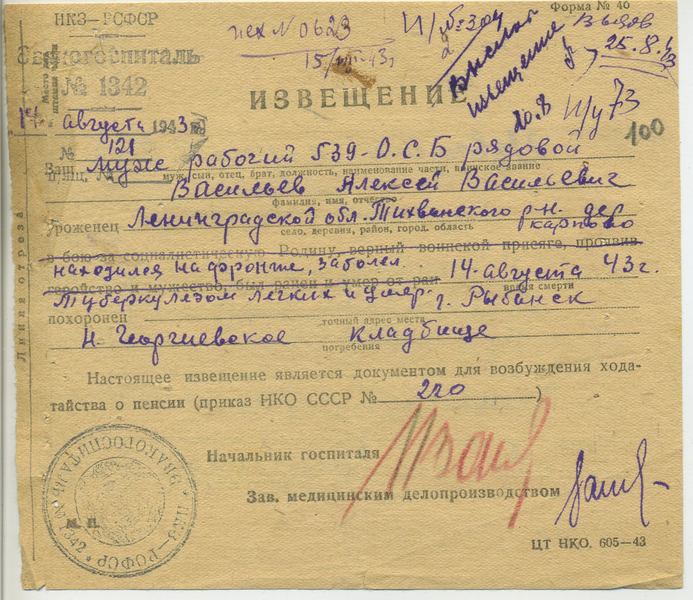 НКЗ—РСФСР
Эвакогоспиталь
№ 1342
Форма № 46
исх № 0623
15/VIII-43г
И/у73
Вызов
25.8.43
извещение
20.8
100
ИЗВЕЩЕНИЕ
14 августа 1943 г.
№ 121
Ваш муж рабочий 539-О.С.Б рядовой
муж, сын, отец, брат, должность, наименование части, воинское звание
Васильев Алексей Васильевич
фамилия, имя, отчество
Уроженец Ленинградской обл. Тихвинского р-н. дер.
село, деревня, район, город, область
карпово
в бою за социалистическую Родину, верный воинской присяге, проявив
находился на фронте, заболел 14-августа 43 г.
геройство и мужество, был ранен и умер от ран
время смерти
Туберкулезом легких и умер. г. Рыбинск
похоронен
точный адрес места
Н. Георгиевское кладбище
погребения
Настоящее извещение является документом для возбуждения хода-
тайства о пенсии (приказ НКО СССР № 220)
Начальник госпиталя
Зав. медицинским делопроизводством
М. П.
ЭВАКОГОСПИТАЛЬ № 1342 * НКЗ—РСФСР *
ЦТ НКО. 605—43
Линия отреза